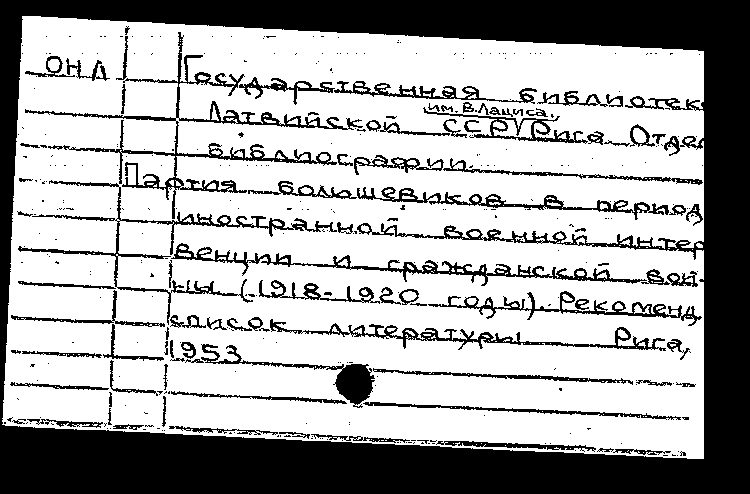 ОНЛ Государственная библиотек
им. В. Лациса,
Латвийской ССР, Рига Отдел
библиографии.
Партия большевиков в период
иностранной военной интер
венции и гражданской вой-
ны (1918-1920 годы). Рекоменд.
список литературы. Рига,
1953